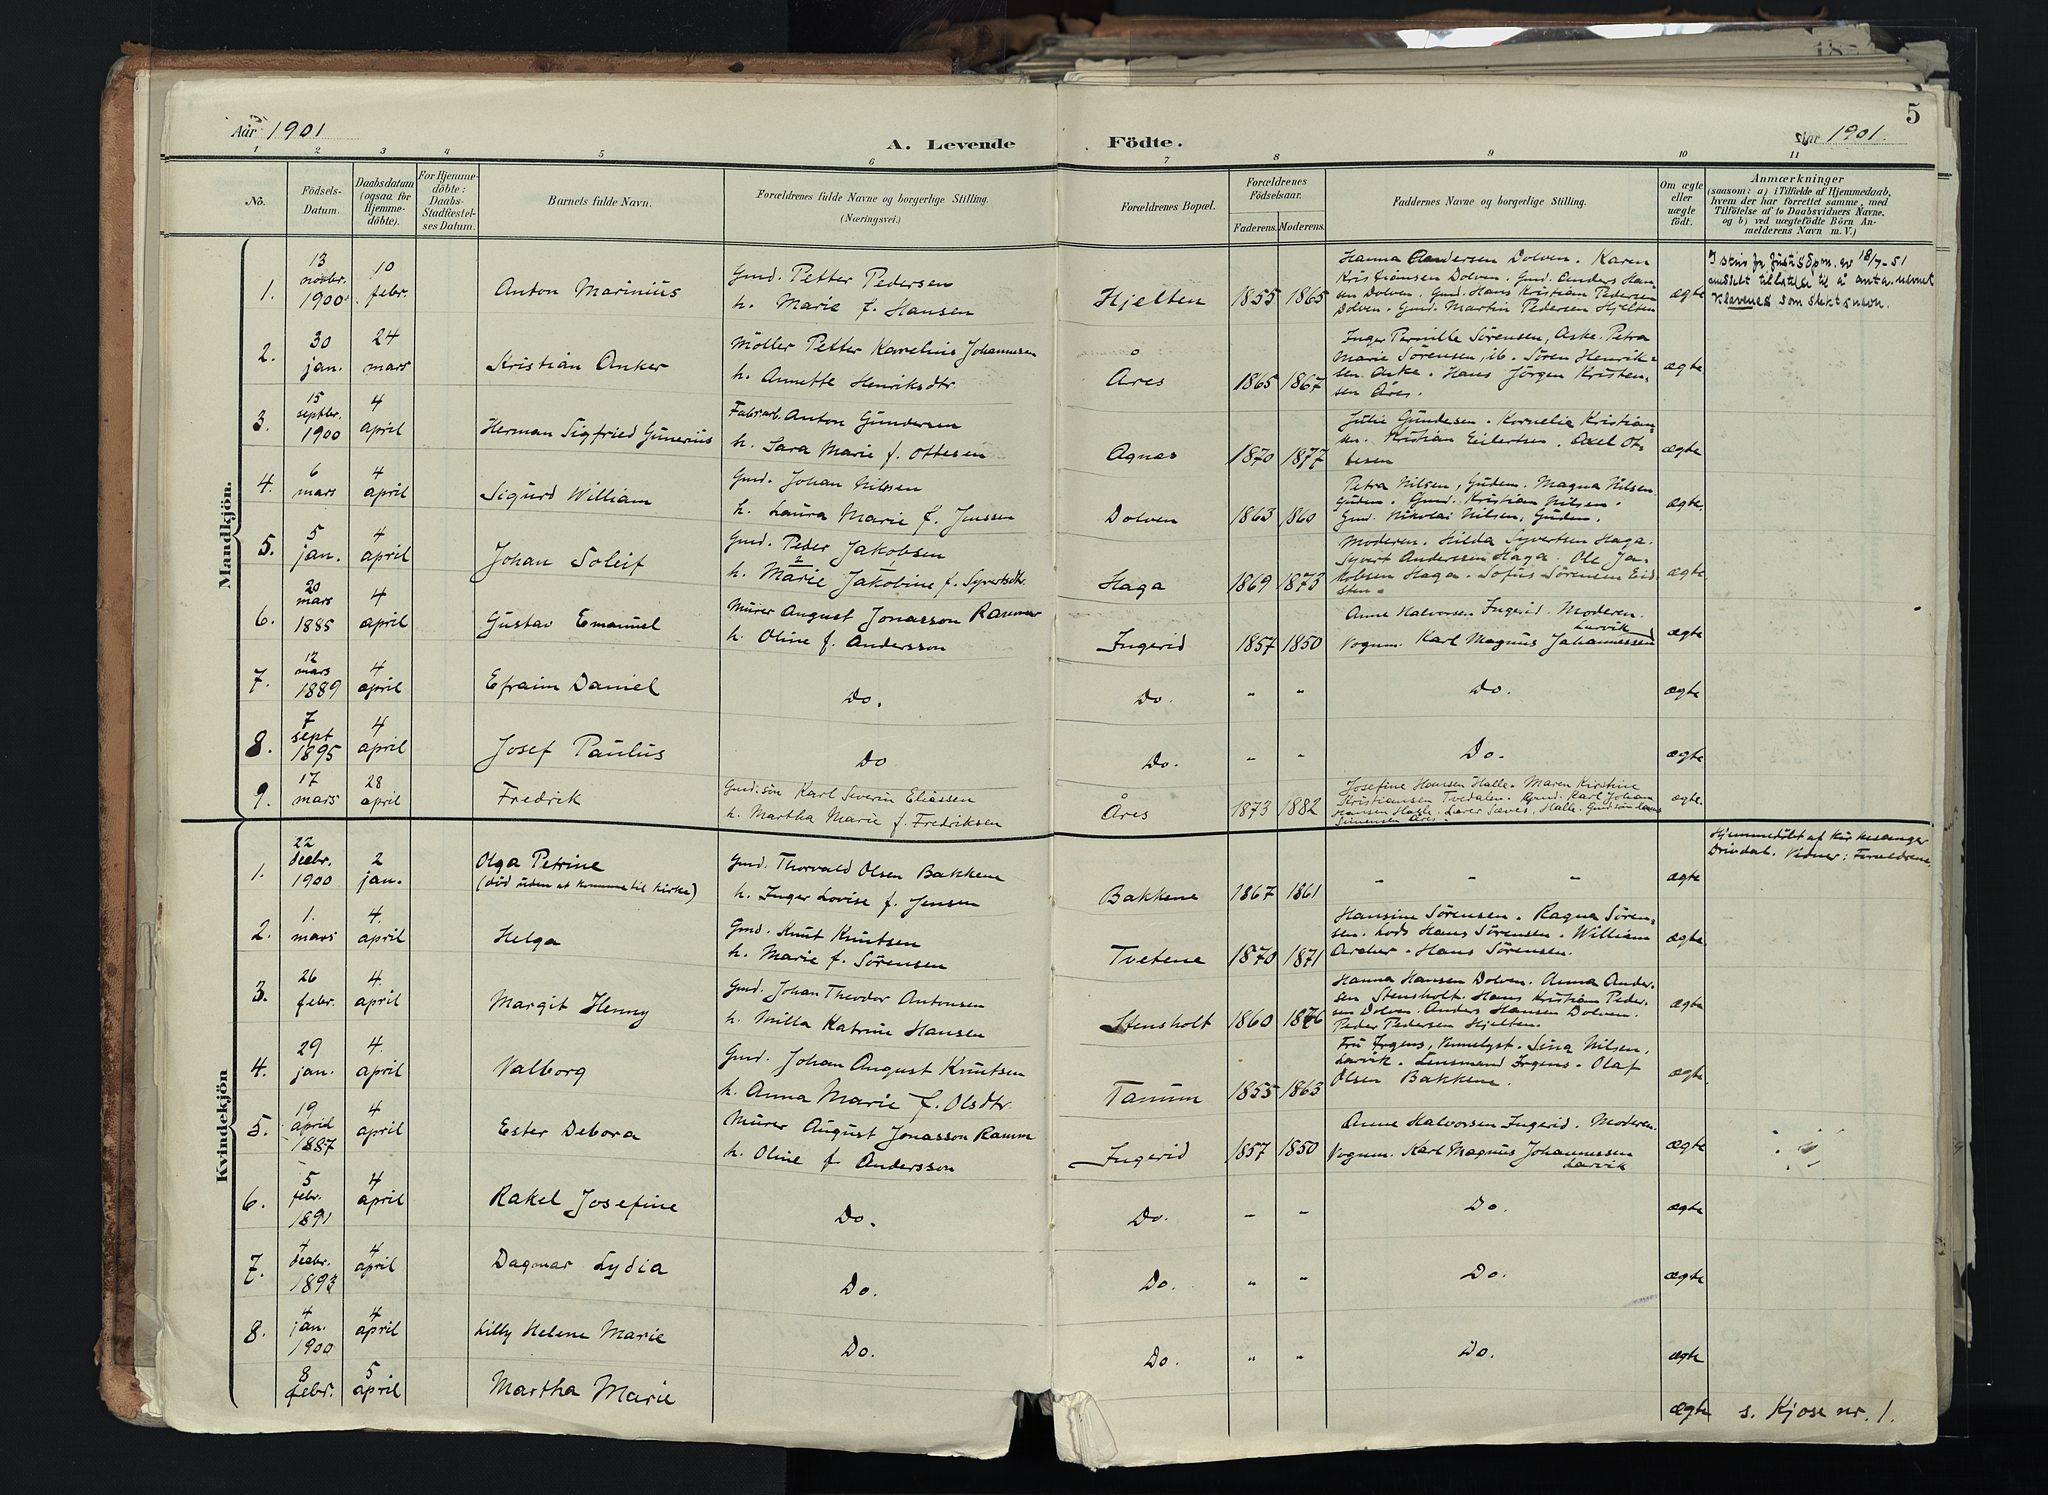 5
Aar 1901
A. Levende
Födte.
Aar 1901.
1 2 3 4 5 6 7 8 9 10 11
No.
Födsels-
Datum.
Daabsdatum
(ogsaa for
Hjemme-
döbte).
For Hjemme-
döbte:
Daabs-
Stadfæstel-
ses Datum.
Barnets fulde Navn.
Forældrenes fulde Navne og borgerlige Stilling.
(Næringsvei.)
Forældrenes Bopæl.
Forældrenes
Födselsaar.
Faderens. Moderens.
Faddernes Navne og borgerlige Stilling.
Om ægte
eller
uægte
födt.
Anmærkninger
(saasom: a) i Tilfælde af Hjemmedaab,
hvem der har forrettet samme, med
Tilföielse af to Daabsvidners Navne,
og b) ved uægtefödte Börn An-
melderens Navn m. V.)
Mandkjön.
1.
13
novbr.
1900
10
febr.
Anton Marinius
Gmd. Petter Pedersen
h. Marie f. Hansen
Hjelten
1855 1865
Hanna Andersen Dolven. Karen
Kristiansen Dolven. Gmd. Anders Han-
sen Dolven. Gmd. Hans Kristian Pedersen
Dolven. Gmd. Martin Pedersen Hjelten
ægte
18/7-51
Klavenes som slektsnavn.
2.
30
jan.
24
mars
Kristian Anker
Möller Petter Karelius Johannesen
h. Annette Henriksdtr
Åres
1865 1867
Inger Pernille Sörensen, Aske. Petra
Marie Sörensen, ib. Sören Henrik-
sen Aske. Hans Jörgen Kristen-
sen Åres.
ægte
3.
15
septbr.
1900
4
april
Herman Sigfried Gunerius
Fabrarb. Anton Gundersen
h. Sara Marie f. Ottesen
Agnes
1870 1877
Julie Gundesen. Kornelia Kristian-
sen. Kristian Eilertsen. Axel Ot-
tesen
ægte
4.
6
mars
4
april
Sigurd William
Gmd. Johan Nilssen
h. Laura Marie f. Jenssen
Dolven
1863 1860
Petra Nilsen, Gudem. Magna Nilsen
Gudem. Gmd. Kristian Nilsen.
Gmd. Nikolai Nilsen, Gudem.
ægte
5.
5
jan.
4
april
Johan Soleif
Gmd. Peder Jakobsen
h. Marie Jakobine f. Syvertsdtr.
Haga
1869 1873
Moderen. Hilda Syvertsen Haga.
Syvert Anderssen Haga. Ole Ja-
kobsen Haga. Sofus Sörensen Eid-
sten.
ægte
6.
20
mars
1885
4
april
Gustav Emanuel
Murer August Jonasson Ramm
h. Oline f. Andersson
Ingerid
1857 1850
Anne Halvorsen Ingerid. Moderen.
Vognm. Karl Magnus Johannessen
Larvik
ægte
7.
12
mars
1889
4
april
Efraim Daniel
Do.
Do.
" "
Do.
ægte
8.
7
sept
1895
4
april
Josef Paulus
Do
Do.
" "
Do.
ægte
9.
17
mars
28
april
Fredrik
Gmdssön Karl Severin Eliassen
h. Martha Marie f. Fredriksen
Åres
1873 1882
Josefine Hansen Halle. Maren Kirstine
Kristiansen Tvedalen. Gmd. Karl Johan
Hansen Halle. Lærer Sæves, Halle.
Simensen Åres
ægte
Kvindekjön
1.
22
decbr.
1900
2
jan.
Olga Petrine
(död uden at komme til kirke)
Gmd. Thorvald Olsen Bakkene
h. Inger Lovise f. Jensen
Bakkene
1867 1861
" " "
ægte
Hjemmedöbt af Kirkesanger
Drivdal. Vidner: Forældrene
2.
1.
mars
4.
april
Helga
Gmd. Knut Knutsen
h. Marie f. Sörensen
Tvetene
1870 1871
Hansine Sörensen. Ragna Sören-
sen. Lods Hans Sörensen. William
Archer. Hans Sörensen.
ægte
3.
26
febr.
4.
april
Margit Henny
Gmd. Johan Theodor Antonsen
h. Milla Katrine Hansen
Stensholt
1860 1876
Hanna Hansen Dolven. Anna Ander-
sen Stensholt. Hans Kristian Peder-
sen Dolven. Anders Hansen Dolven.
Peder Pedersen Hjelten.
ægte
4.
29
jan.
4.
april
Valborg
Gmd. Johan August Knutsen
h. Anna Marie f. Olsdtr.
Tanum
1855 1863
Fru Irgens, Vennelyst. Sina Nilsen,
Larvik. Lensmand Irgens. Olaf
Olsen Bakkene.
ægte
5.
19
april
1887
4
april
Ester Debora
Murer August Jonasson Ramm
h. Oline f. Andersson
Ingerid
1857 1850
Anne Halvorsen Ingerid. Moderen.
Vognm. Karl Magnus Johannessen
Larvik
ægte
6.
5
febr.
1891
4
april
Rakel Josefine
Do.
Do.
" "
Do.
ægte
7.
4
decbr.
1893
4
april
Dagmar Lydia
Do.
Do.
" "
Do.
ægte
8.
4
jan.
1900
4
april
Lilly Helene Marie
Do.
Do.
" "
Do.
ægte
8
febr.
5
april
Martha Marie
ægte
s. Kjose nr. 1.